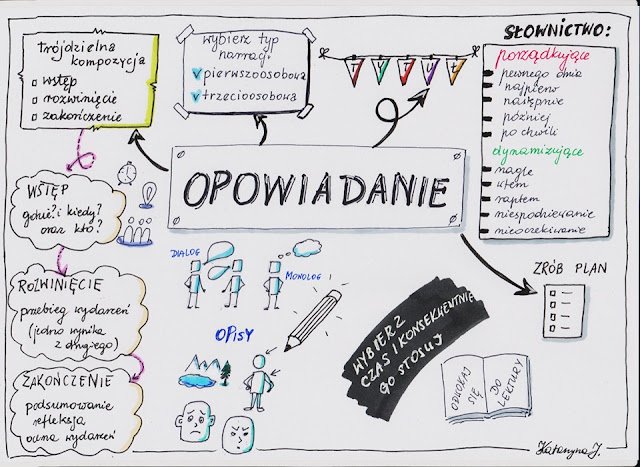 trójdzielna
kompozycja
wstęp
rozwinięcie
zakończenie
wybierz typ
narracji
pierwszoosobowa
trzecioosobowa
TYTUŁ
SŁOWNICTWO:
porządkujące
pewnego dnia
najpierw
następnie
później
po chwili
dynamizujące
nagle
wtem
raptem
niespodziewanie
nieoczekiwanie
OPOWIADANIE
WSTĘP
gdzie? i kiedy?
oraz kto?
ROZWINIĘCIE
przebieg wydarzeń
(jedno wynika
z drugiego)
ZAKOŃCZENIE
podsumowanie
refleksja
ocena wydarzeń
DIALOG
MONOLOG
OPISY
WYBIERZ
CZAS I KONSEKWENTNIE
GO STOSUJ
ZRÓB PLAN
ODWOŁAJ
SIĘ
DO
LEKTURY
Katarzyna J.